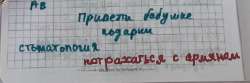 АВ
Привезти бабушке
подарки
стоматология
потрахаться с армянам